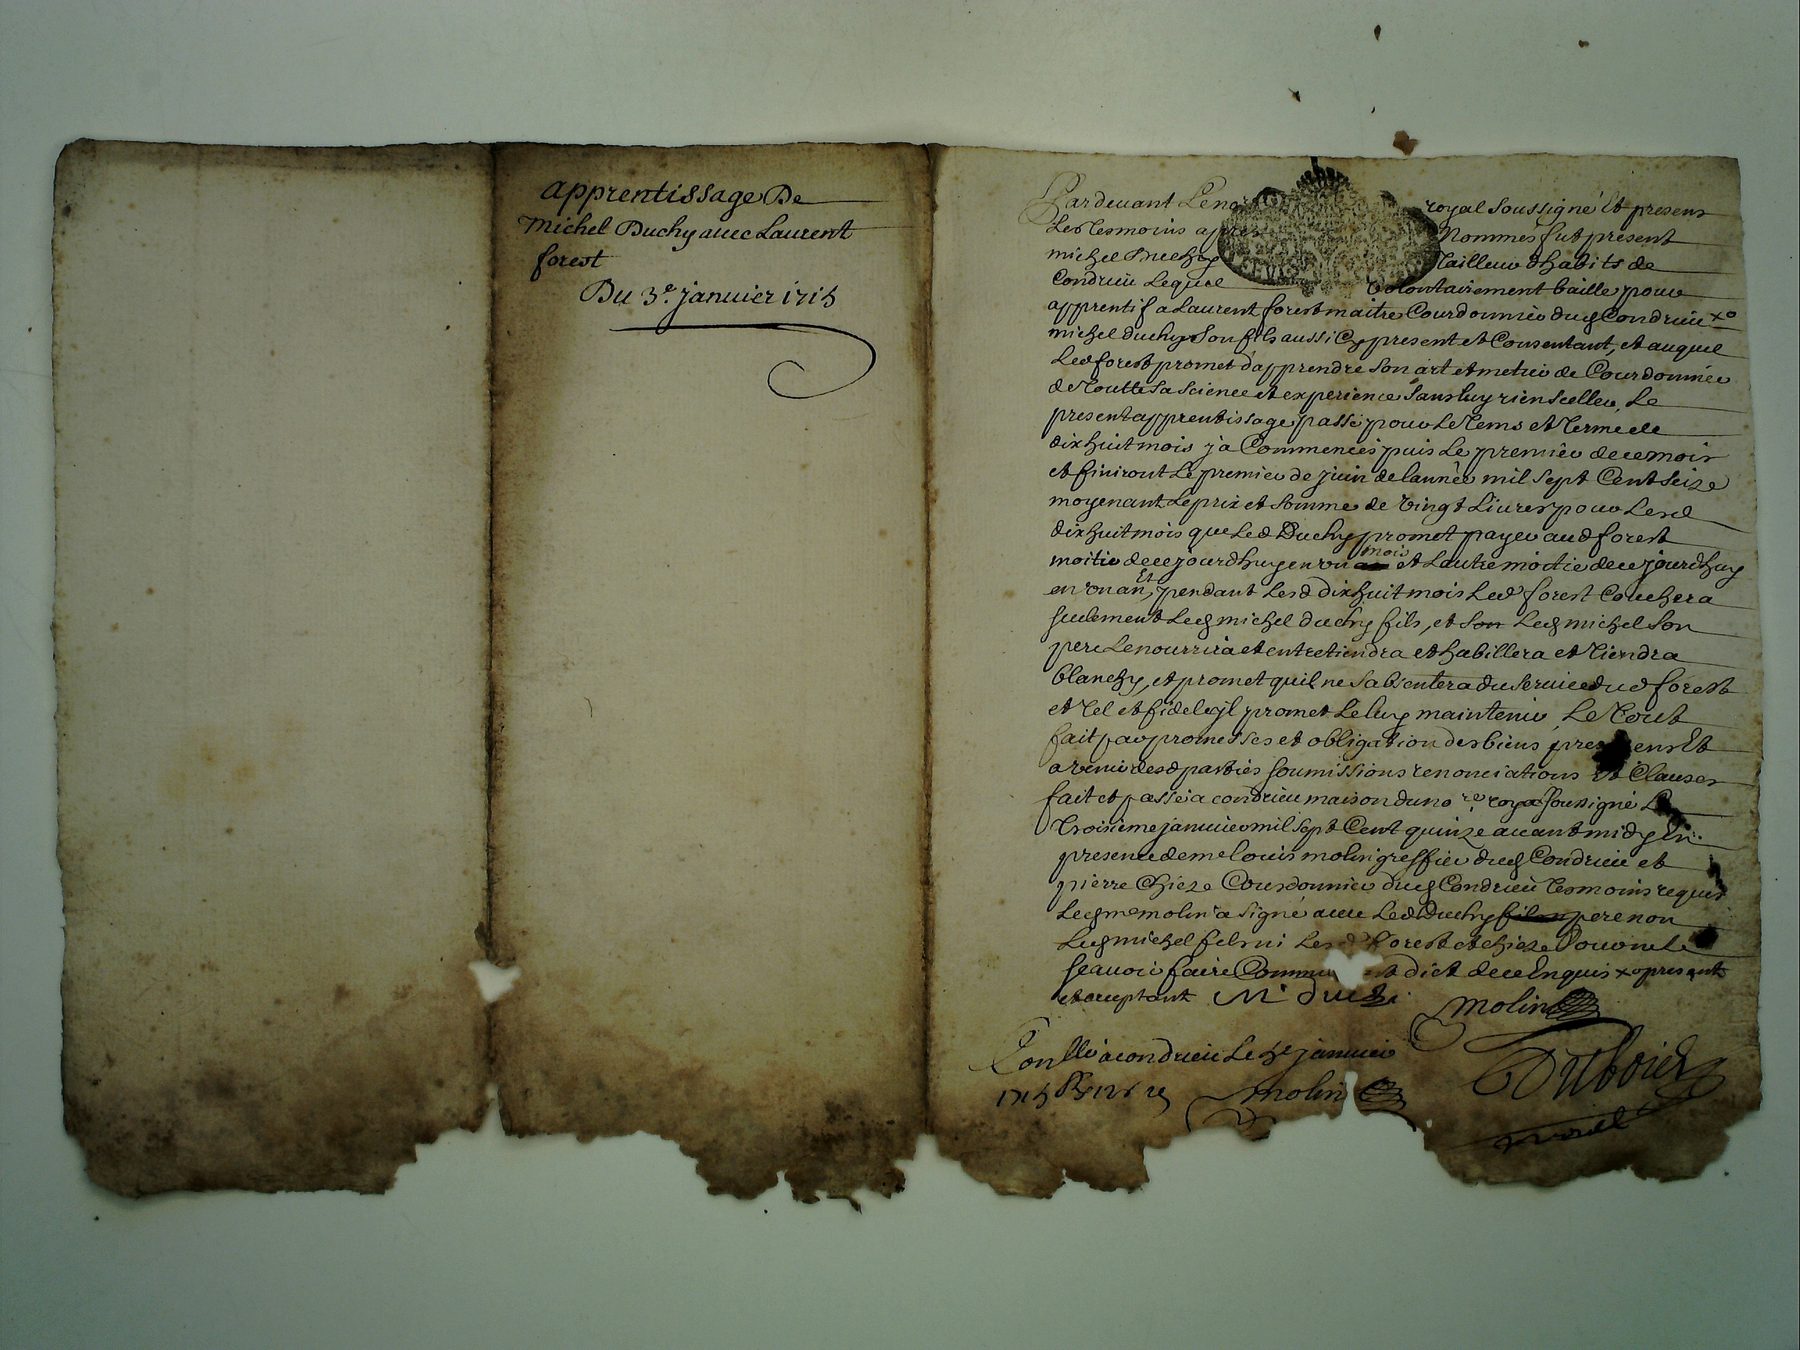 apprentissage De
Michel Duchy avec Laurent
forest
Du 3e. janvier 1715
Pardevant Le no royal soussigné Et presens
Les Tesmoins apres Nommés fut present
michel Duchy Tailleur dhabits de
Condrieu Lequel volontairement baille pour
apprentif a Laurent forest maitre Courdonnier dud Condrieu xo
michel duchy son fils aussi Cy present et Consentant, et auquel
Led forest promet dapprendre son art et metier de Courdonnier
de Toutte sa science et experience sans luy rien sceller, Le
present apprentissage passé pour Le Tems et Terme de
dixhuit mois ja Commencés puis Le premier de ce mois
et finiront Le premier de juin de lannée mil sept Cent seize
moyenant Le prix et somme de vingt Livres pour Lesd
dixhuit mois que Led Duchy promet payer aud forest
moitie de ce jourdhuy en un mois et Lautre moitie de ce jourdhuy
en un an, Et pendant Lesd dixhuit mois Led forest Couchera
seulement Led michel duchy fils, et son Led michel son
pere Le nourrira et entretiendra et habillera et Tiendra
blanchy, et promet quil ne sabsentera du service dud forest
et Tel et fidel il promet Le luy maintenir, Le Tout
fait par promesses et obligation des biens pres ens Et
avenir desd parties soumissions renonciations Et Clauses
fait et passé a condrieu maison du no re royal soussigné Le
Troisieme janvier mil sept Cent quinze avant midy En
presence de me Louis molin greffier dud Condrieu et
pierre Chieze Courdonnier dud Condrieu Tesmoins requis
Led me molin a signé avec Led Duchy pere non
Led michel fils ni Les forest et chieze pour ne
scavoir faire Comme ont dict de ce Enquis xo present
et acceptant M duchi molin
Conllé a condrieu Le 5e janvier
1715 molin Duboies